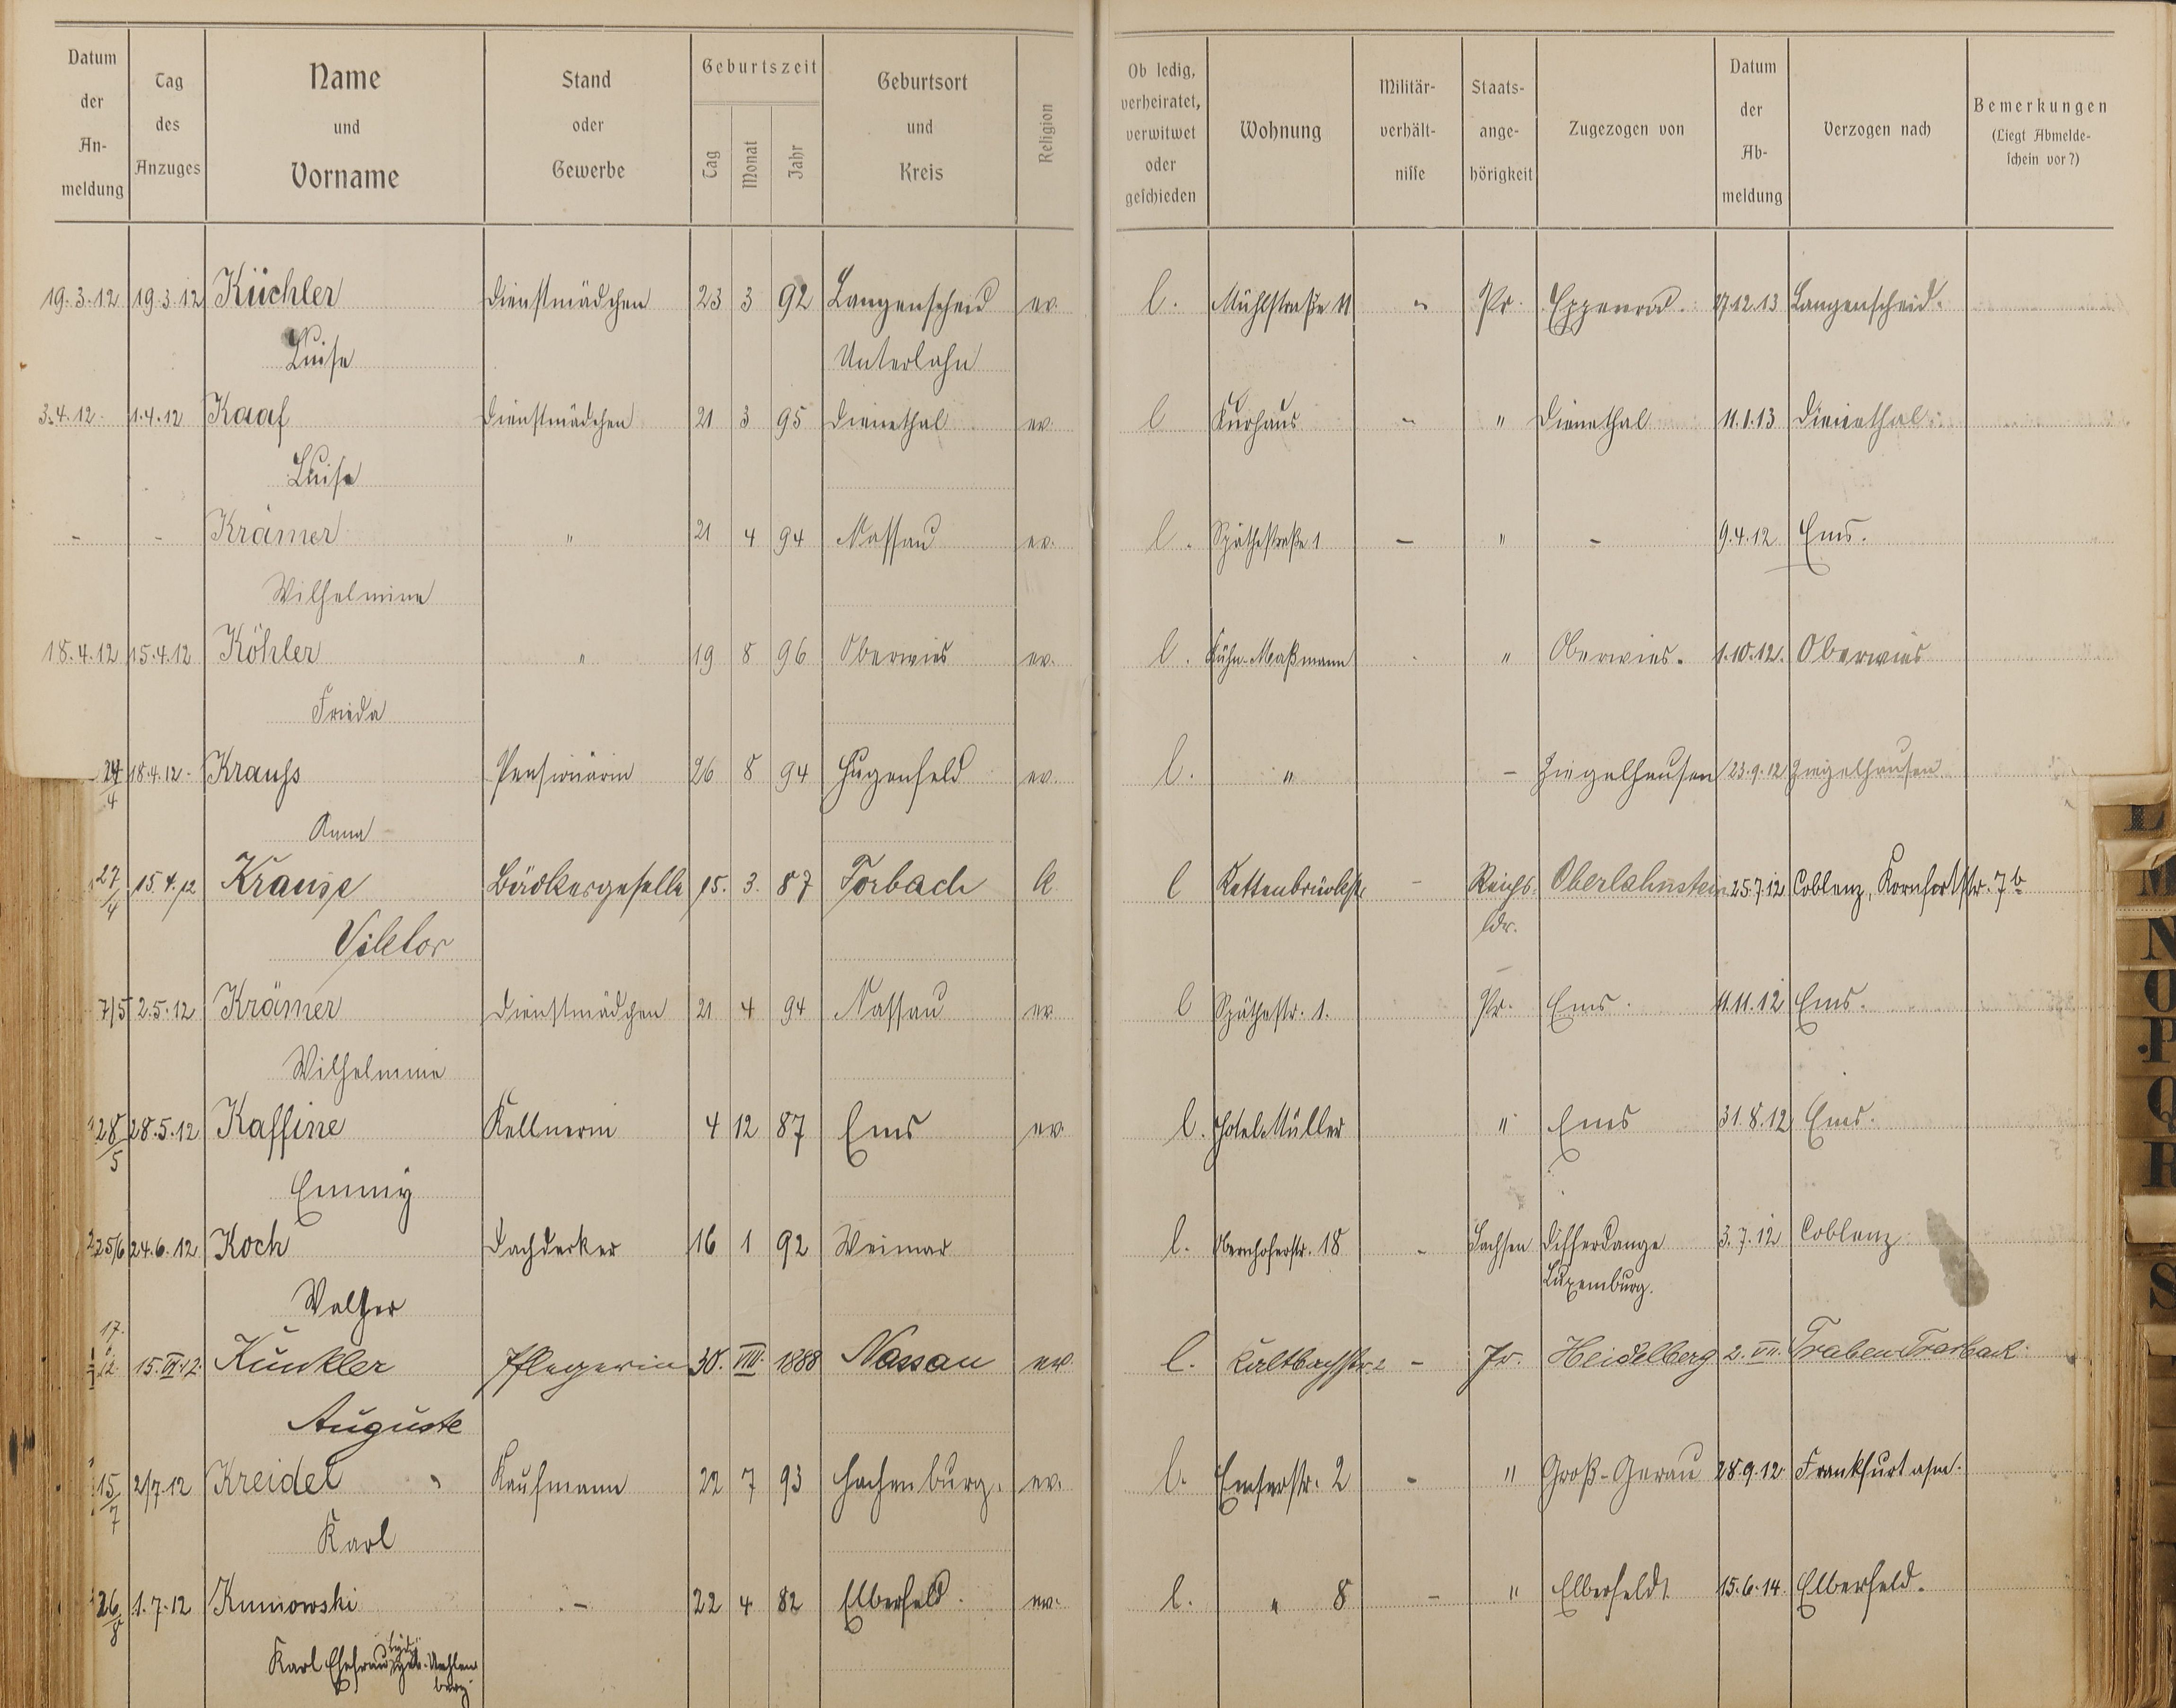 Datum der Anmeldung | Tag des Anzuges | Name und Vorname | Stand oder Gewerbe | Geburtszeit Tag Monat Jahr | Geburtsort und Kreis | Religion | Ob ledig, verheiratet, verwitwet oder geschieden | Wohnung | Militärverhältnisse | Staatsangehörigkeit | Zugezogen von | Datum der Abmeldung | Verzogen nach | Bemerkungen (Liegt Abmeldeschein vor?)
19.3.12 19.3.12 Küchler Dienstmädchen 23 3 92 Langenscheid ev. l. Mühlstraße 11 " Pr. Eppenrod. 27.12.13 Langenscheid.
Luise Unterlahn
3.4.12. 1.4.12 Kaaf Dienstmädchen 21 3 95 Dienethal ev. l Kurhaus " " Dienethal 11.1.13 Dienethal.
Luise
- - Krämer " 21 4 94 Nassau ev. l. Späthestraße 1 - " - 9.4.12 Ems.
Wilhelmine
18.4.12 15.4.12 Köhler " 19 8 96 Oberwies ev. l. Kühn-Maßmann " Oberwies. 1.10.12. Oberwies
Frieda
24/4 18.4.12. Krauss Pensionärin 26 8 94 Hugenfeld ev. l. " - Ziegelhausen 23.9.12 Ziegelhausen
Anna
27/4 15.4.12 Krause Bäckergeselle 15. 3. 87 Forbach k l Kettenbrückstr - Reichs- Oberlahnstein 25.7.12 Coblenz, Kornfortstr. 7b
Viktor ldr.
7/5 2.5.12 Krämer Dienstmädchen 21 4 94 Nassau ev l Späthestr. 1. Pr. Ems. 11.11.12 Ems.
Wilhelmine
28/5 28.5.12 Kaffine Kellnerin 4 12 87 Ems ev. l. Hotel Müller " Ems 31.8.12 Ems.
Emmy
25/6 24.6.12 Koch Dachdecker 16 1 92 Weimar l. Obernhoferstr. 18 - Sachsen Differdange 3.7.12 Coblenz
Walther Luxemburg.
17. 12. 15.VI.12. Künkler Pflegerin 30. VIII. 1868 Nassau ev. l. Kaltbachstr. 2 - Pr. Heidelberg 2.VII. Traben Trarbach
Auguste
15/7 2/7.12 Kreidel Kaufmann 22 7 93 Hachenburg. ev. l. Emserstr. 2 - " Groß-Gerau 28.9.12 Frankfurt a/m.
Karl
26/8 1.7.12 Kunowski - 22 4 82 Elberfeld. ev. l. " 8 - " Elberfeldt 15.6.14. Elberfeld.
Karl Ehefrau geb.
berg.
L
M
N
O
P
Q
R
S